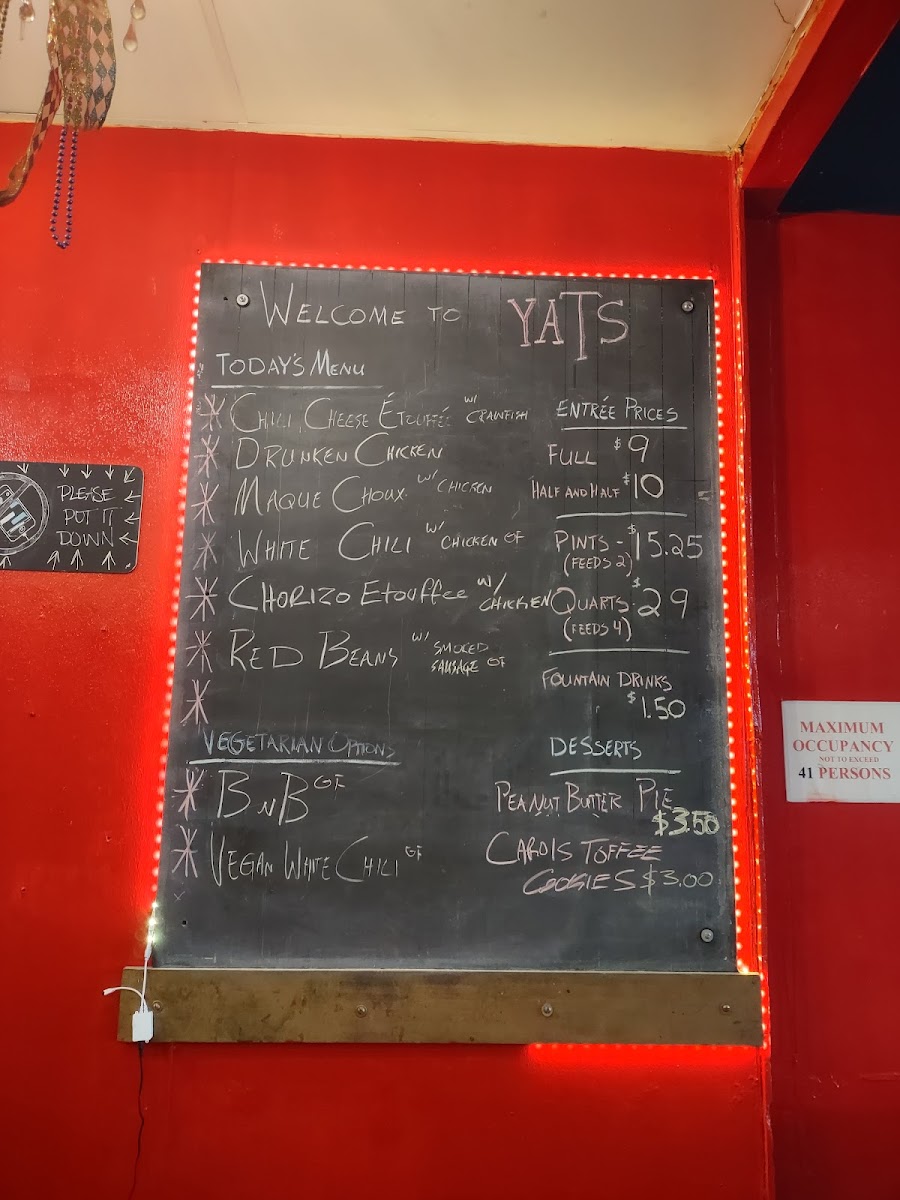 WELCOME TO YATS
TODAY'S MENU
CHILI CHEESE ÉTOUFFÉE W/ CRAWFISH
DRUNKEN CHICKEN
MAQUE CHOUX W/ CHICKEN
WHITE CHILI W/ CHICKEN GF
CHORIZO ETOUFFEE W/ CHICKEN
RED BEANS W/ SMOKED SAUSAGE GF
VEGETARIAN OPTIONS
B N B GF
VEGAN WHITE CHILI GF
ENTRÉE PRICES
FULL $9
HALF AND HALF $10
PINTS - $15.25
(FEEDS 2)
QUARTS - $29
(FEEDS 4)
FOUNTAIN DRINKS
$1.50
DESSERTS
PEANUT BUTTER PIE
$3.50
CAROLS TOFFEE
COOKIES $3.00
PLEASE
PUT IT
DOWN
MAXIMUM
OCCUPANCY
NOT TO EXCEED
41 PERSONS